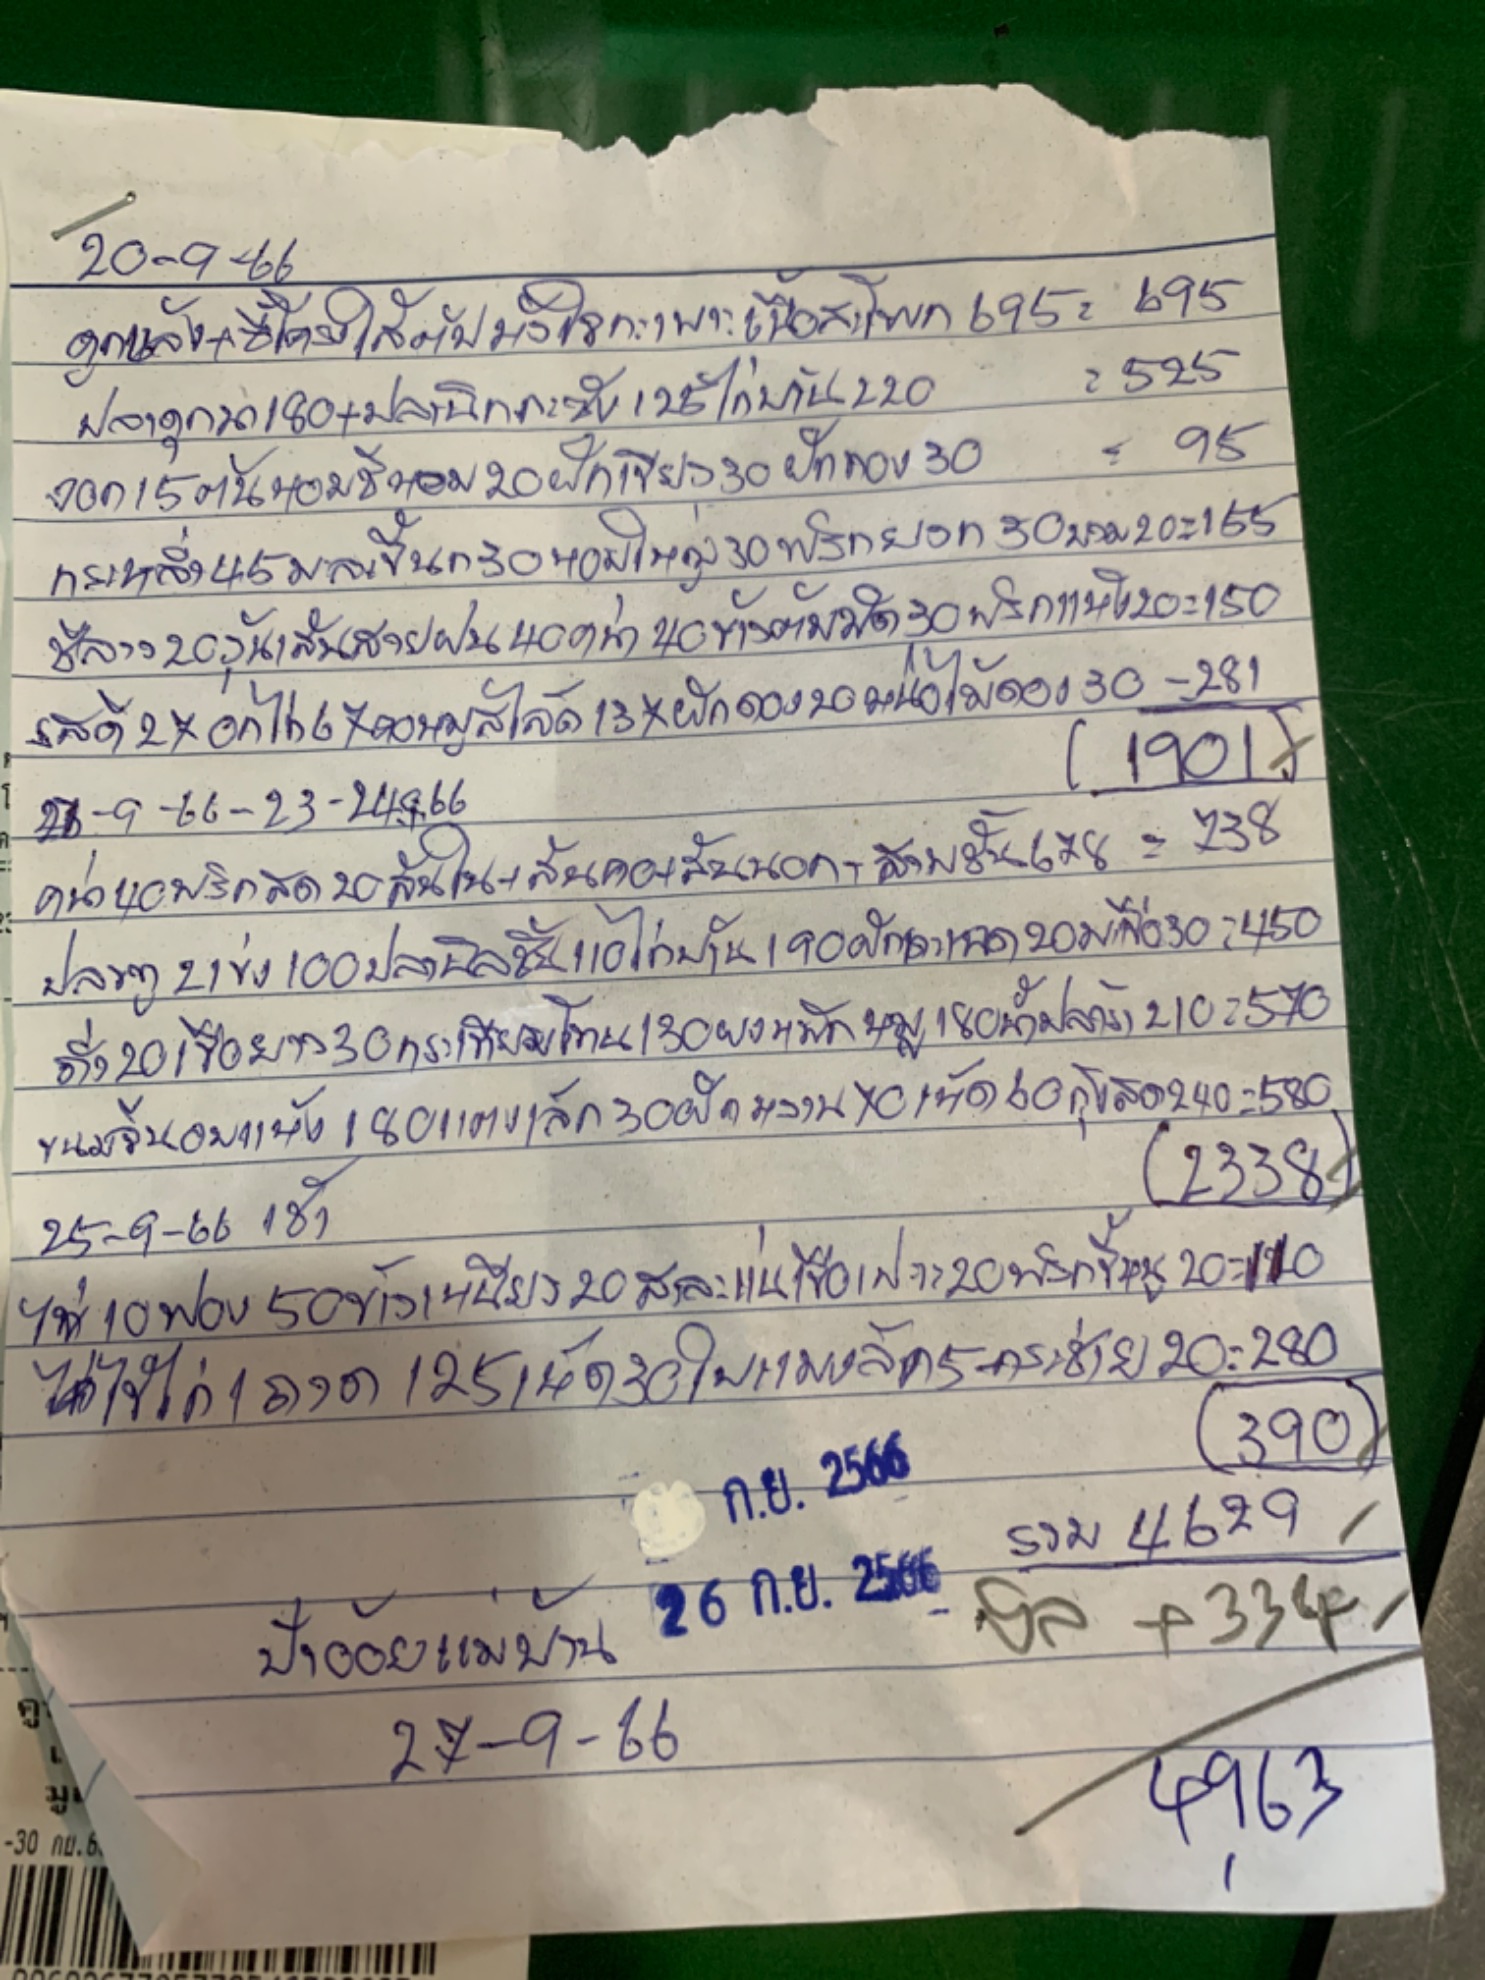 20-9-66
ดูกหลัง+ซี่โครงไส้ตับม้ามไตกะเพาะเนื้อสะโพก 695= 695
ปลาดุกนา 180+ปลานิลกะชัง 125 ไก่บ้าน 220 = 525
งอก 15 ต้นหอมชีหอม 20 ฝักเขียว 30 ฝักทอง 30 = 95
กระหล่ำ 45 มะละขี้นก 30 หอมใหญ่ 30 พริกหยวก 30 บวบ 20 = 155
ชีลาว 20 วุ้นเส้นสายฝน 40 คน้า 40 ข้าวต้มมัด 30 พริกแห้ง 20 = 150
รสดี 27 อกไก่ 67 คอหมูสไลด์ 137 ผักดอง 20 หน่อไม้ดอง 30 - 281
(1901)
21-9-66-23-24.9.66
คน้า 40 พริกสด 20 สันใน+สันคอ+สันนอก+สามชั้น 678 = 738
ปลาทู 2 เข่ง 100 ปลานิลชิ้น 110 ไก่บ้าน 190 ฝัก 20 มะเขือ 30 = 450
ถั่ว 20 เขือยาว 30 กระเทียมโทน 130 ผงหมัก หมู 180 น้ำปลาร้า 210 = 570
ขนมจีนอบแห้ง 180 แตงเล็ก 30 ผักหวาน 70 เห็ด 60 กุ้งสด 240 = 580
(2338)
25-9-66 เช้า
ไข่ 10 ฟอง 50 ข้าวเหนียว 20 สาละแน่เขือเปาะ 20 พริกขี้หนู 20 = 110
ไข่ไก่ 1 ถาด 125 เห็ด 30 ใบแมงลัก 5 กระชาย 20 = 280
(390)
ก.ย. 2566
รวม 4629
26 ก.ย. 2566
บิล + 334
ป้าอ้อยแม่บ้าน
27-9-66
4963
-30 กย.6